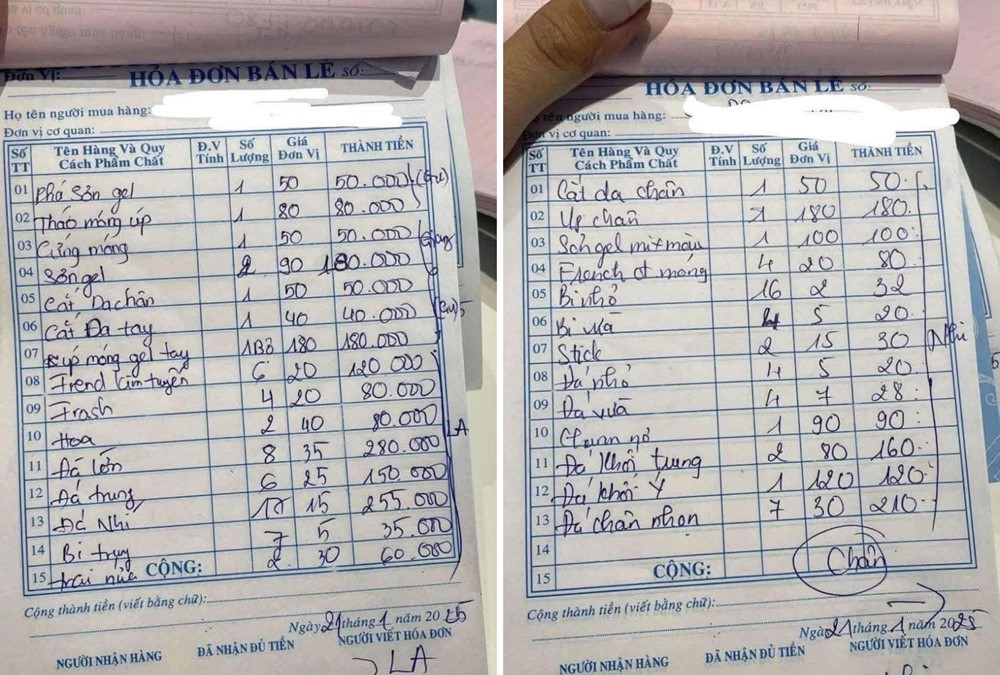 Đơn Vị:
HÓA ĐƠN BÁN LẺ SỐ:
Họ tên người mua hàng:
Đơn vị cơ quan:
Số TT Tên Hàng Và Quy Cách Phẩm Chất Đ.V Tính Số Lượng Giá Đơn Vị THÀNH TIỀN
01 Phá Sơn gel 1 50 50.000
02 Tháo móng úp 1 80 80.000
03 Cứng móng 1 50 50.000
04 Sơn gel 2 90 180.000
05 Cắt Da chân 1 50 50.000
06 Cắt Da tay 1 40 40.000
07 úp móng gel tay 1Bộ 180 180.000
08 Frend kim tuyến 6 20 120 000
09 Frash 4 20 80.000
10 Hoa 2 40 80.000
11 Đá lớn 8 35 280.000
12 Đá trung 6 25 150.000
13 Đá Nhỉ 17 15 255.000
14 Bi trụ 7 5 35.000
15 trái 2 30 60.000
CỘNG:
LA
Cộng thành tiền (viết bằng chữ):
Ngày 21 tháng 1 năm 2025
NGƯỜI NHẬN HÀNG ĐÃ NHẬN ĐỦ TIỀN NGƯỜI VIẾT HÓA ĐƠN
LA
HÓA ĐƠN BÁN LẺ SỐ:
tên người mua hàng:
Đơn vị cơ quan:
Số TT Tên Hàng Và Quy Cách Phẩm Chất Đ.V Tính Số Lượng Giá Đơn Vị THÀNH TIỀN
01 Cắt da chân 1 50 50.
02 Úp chân 1 180 180.
03 Sơn gel mix màu 1 100 100.
04 French móng 4 20 80.
05 Bi nhỏ 16 2 32
06 Bi vừa 4 5 20.
07 Stick 2 15 30
08 Đá nhỏ 4 5 20.
09 Đá vừa 4 7 28.
10 1 90 90.
11 Đá khối trung 2 80 160.
12 Đá khối Ý 1 120 120.
13 Đá chân nhọn 7 30 210.
14
15 CỘNG:
Nhi
Chân
Cộng thành tiền (viết bằng chữ):
Ngày 21 tháng 1 năm 2025
NGƯỜI NHẬN HÀNG ĐÃ NHẬN ĐỦ TIỀN NGƯỜI VIẾT HÓA ĐƠN